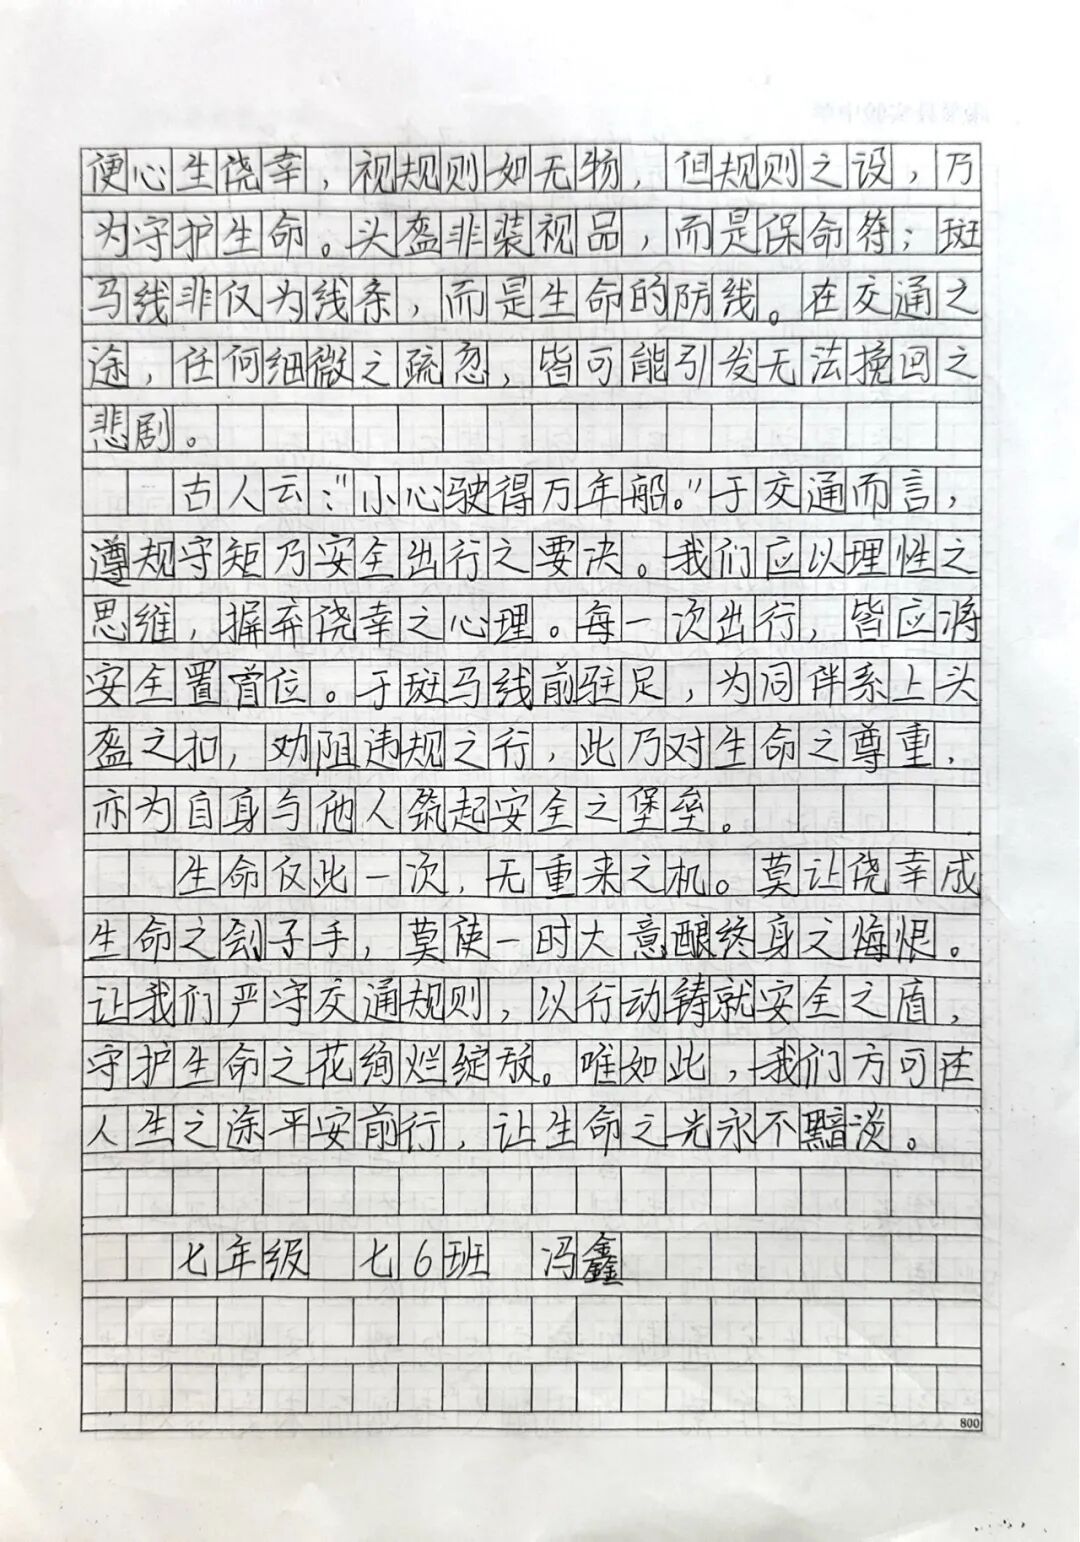 便心生侥幸，视规则如无物，但规则之设，乃
为守护生命。头盔非装视品，而是保命符；斑
马线非仅为线条，而是生命的防线。在交通之
途，任何细微之疏忽，皆可能引发无法挽回之
悲剧。
古人云："小心驶得万年船。"于交通而言，
遵规守矩乃安全出行之要决。我们应以理性之
思维，摒弃侥幸之心理。每一次出行，皆应将
安全置首位。于斑马线前驻足，为同伴系上头
盔之扣，劝阻违规之行，此乃对生命之尊重，
亦为自身与他人筑起安全之堡垒。
生命仅此一次，无重来之机。莫让侥幸成
生命之刽子手，莫使一时大意酿终身之悔恨。
让我们严守交通规则，以行动铸就安全之盾，
守护生命之花绚烂绽放。唯如此，我们方可在
人生之途平安前行，让生命之光永不黯淡。
七年级 七6班 冯鑫
800